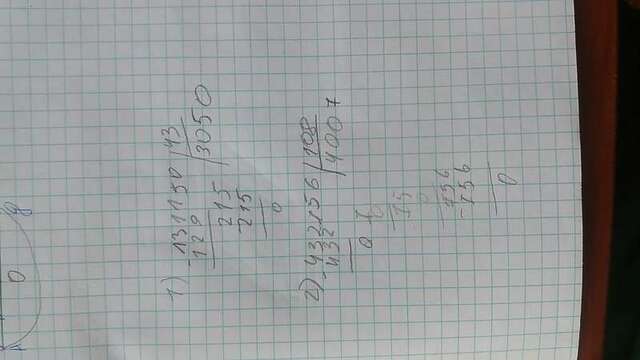 O y
1) 131150 | 43
- 129 | 3050
215
- 215
0
2) 432756 | 108
- 432 | 4007
0 7
0
75
0
756
- 756
0